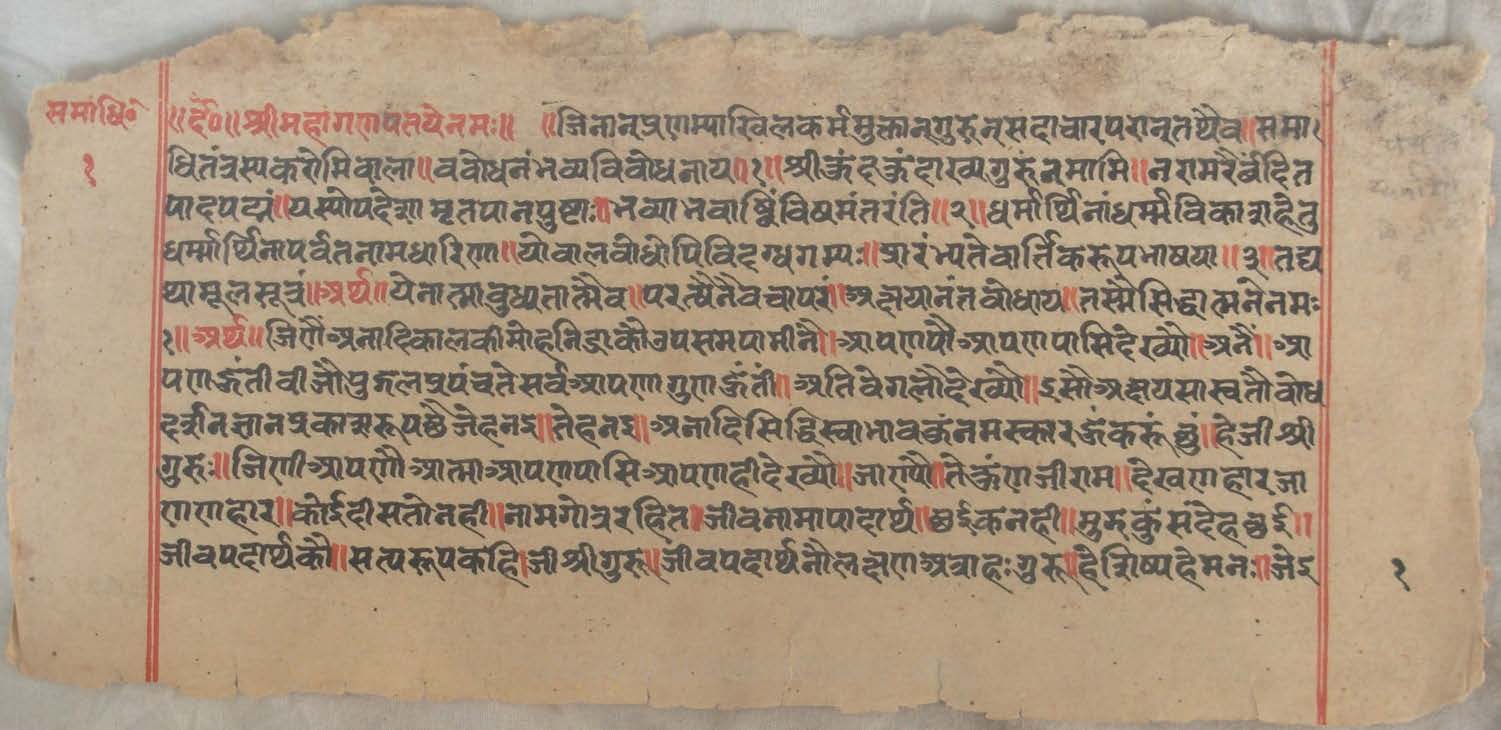 समाधि०
१
॥र्द०॥ श्रीमहागणपतयेनमः॥ ॥जिनान्प्रणम्याखिलकर्ममुक्तान्गुरुन्सदाचारपरान्तथैव॥समा
धितंत्रस्यकरोमिबाला॥वबोधनंभव्यविबोधनाय॥१॥श्रीकुंदकुंदाख्यगुरुंनमामि॥नरामरैर्वंदित
पादपद्मं॥यस्योपदेशामृतपानपुष्टाः॥भव्याभवाब्धिंविषमंतरंति॥२॥धर्मार्थिनांधर्म्मविकाशहेतु
धर्म्मार्थिनापर्वतनामधारिणा॥योबालबोधोपिविदग्धगम्यः॥प्रारंभ्यतेवार्त्तिकरूपभाषया॥३॥तद्य
थामूलसूत्रं॥अर्थ॥येनात्माबुध्यतात्मैव॥परत्वेनैवचापरां॥अक्षयानंतबोधाय॥तस्मैसिद्धात्मनेनमः
१॥अर्थ॥जिणैंअनादिकालकीमोहनिद्राकौउपसमपामीनौ॥आपणपौआपणपासिदेख्यौ॥अनैं॥आ
पणऊंतीबीजौपुद्गलप्रपंचतेसर्वआपणागुणऊंतीं॥अतिवेगलौदेख्यौ॥इसौअक्षयसास्वतौबोध
दर्शनज्ञानप्रकाशरूपछैजेहनइ॥तेहनइ॥अनादिसिद्धिस्वाभावकुंनमस्कारऊंकरूंछुं॥हेजीश्री
गुरुः॥जिणीआपणौआत्माआपणपासिआपणहीदेख्यौ॥जाण्यौ॥तेकुंणजीराम॥देखणहारजा
णणहार॥कोईदीसतोनही॥नामगोत्ररहित॥जीवनामापादार्थ॥छईकनही॥मुझकुंसंदेहछई॥
जीवपदार्थकौ॥सत्यरूपकहि॥जीश्रीगुरू॥जीवपदार्थनौलक्षणअत्राहःगुरू॥हैशिष्यहेमनः॥जेइ
१